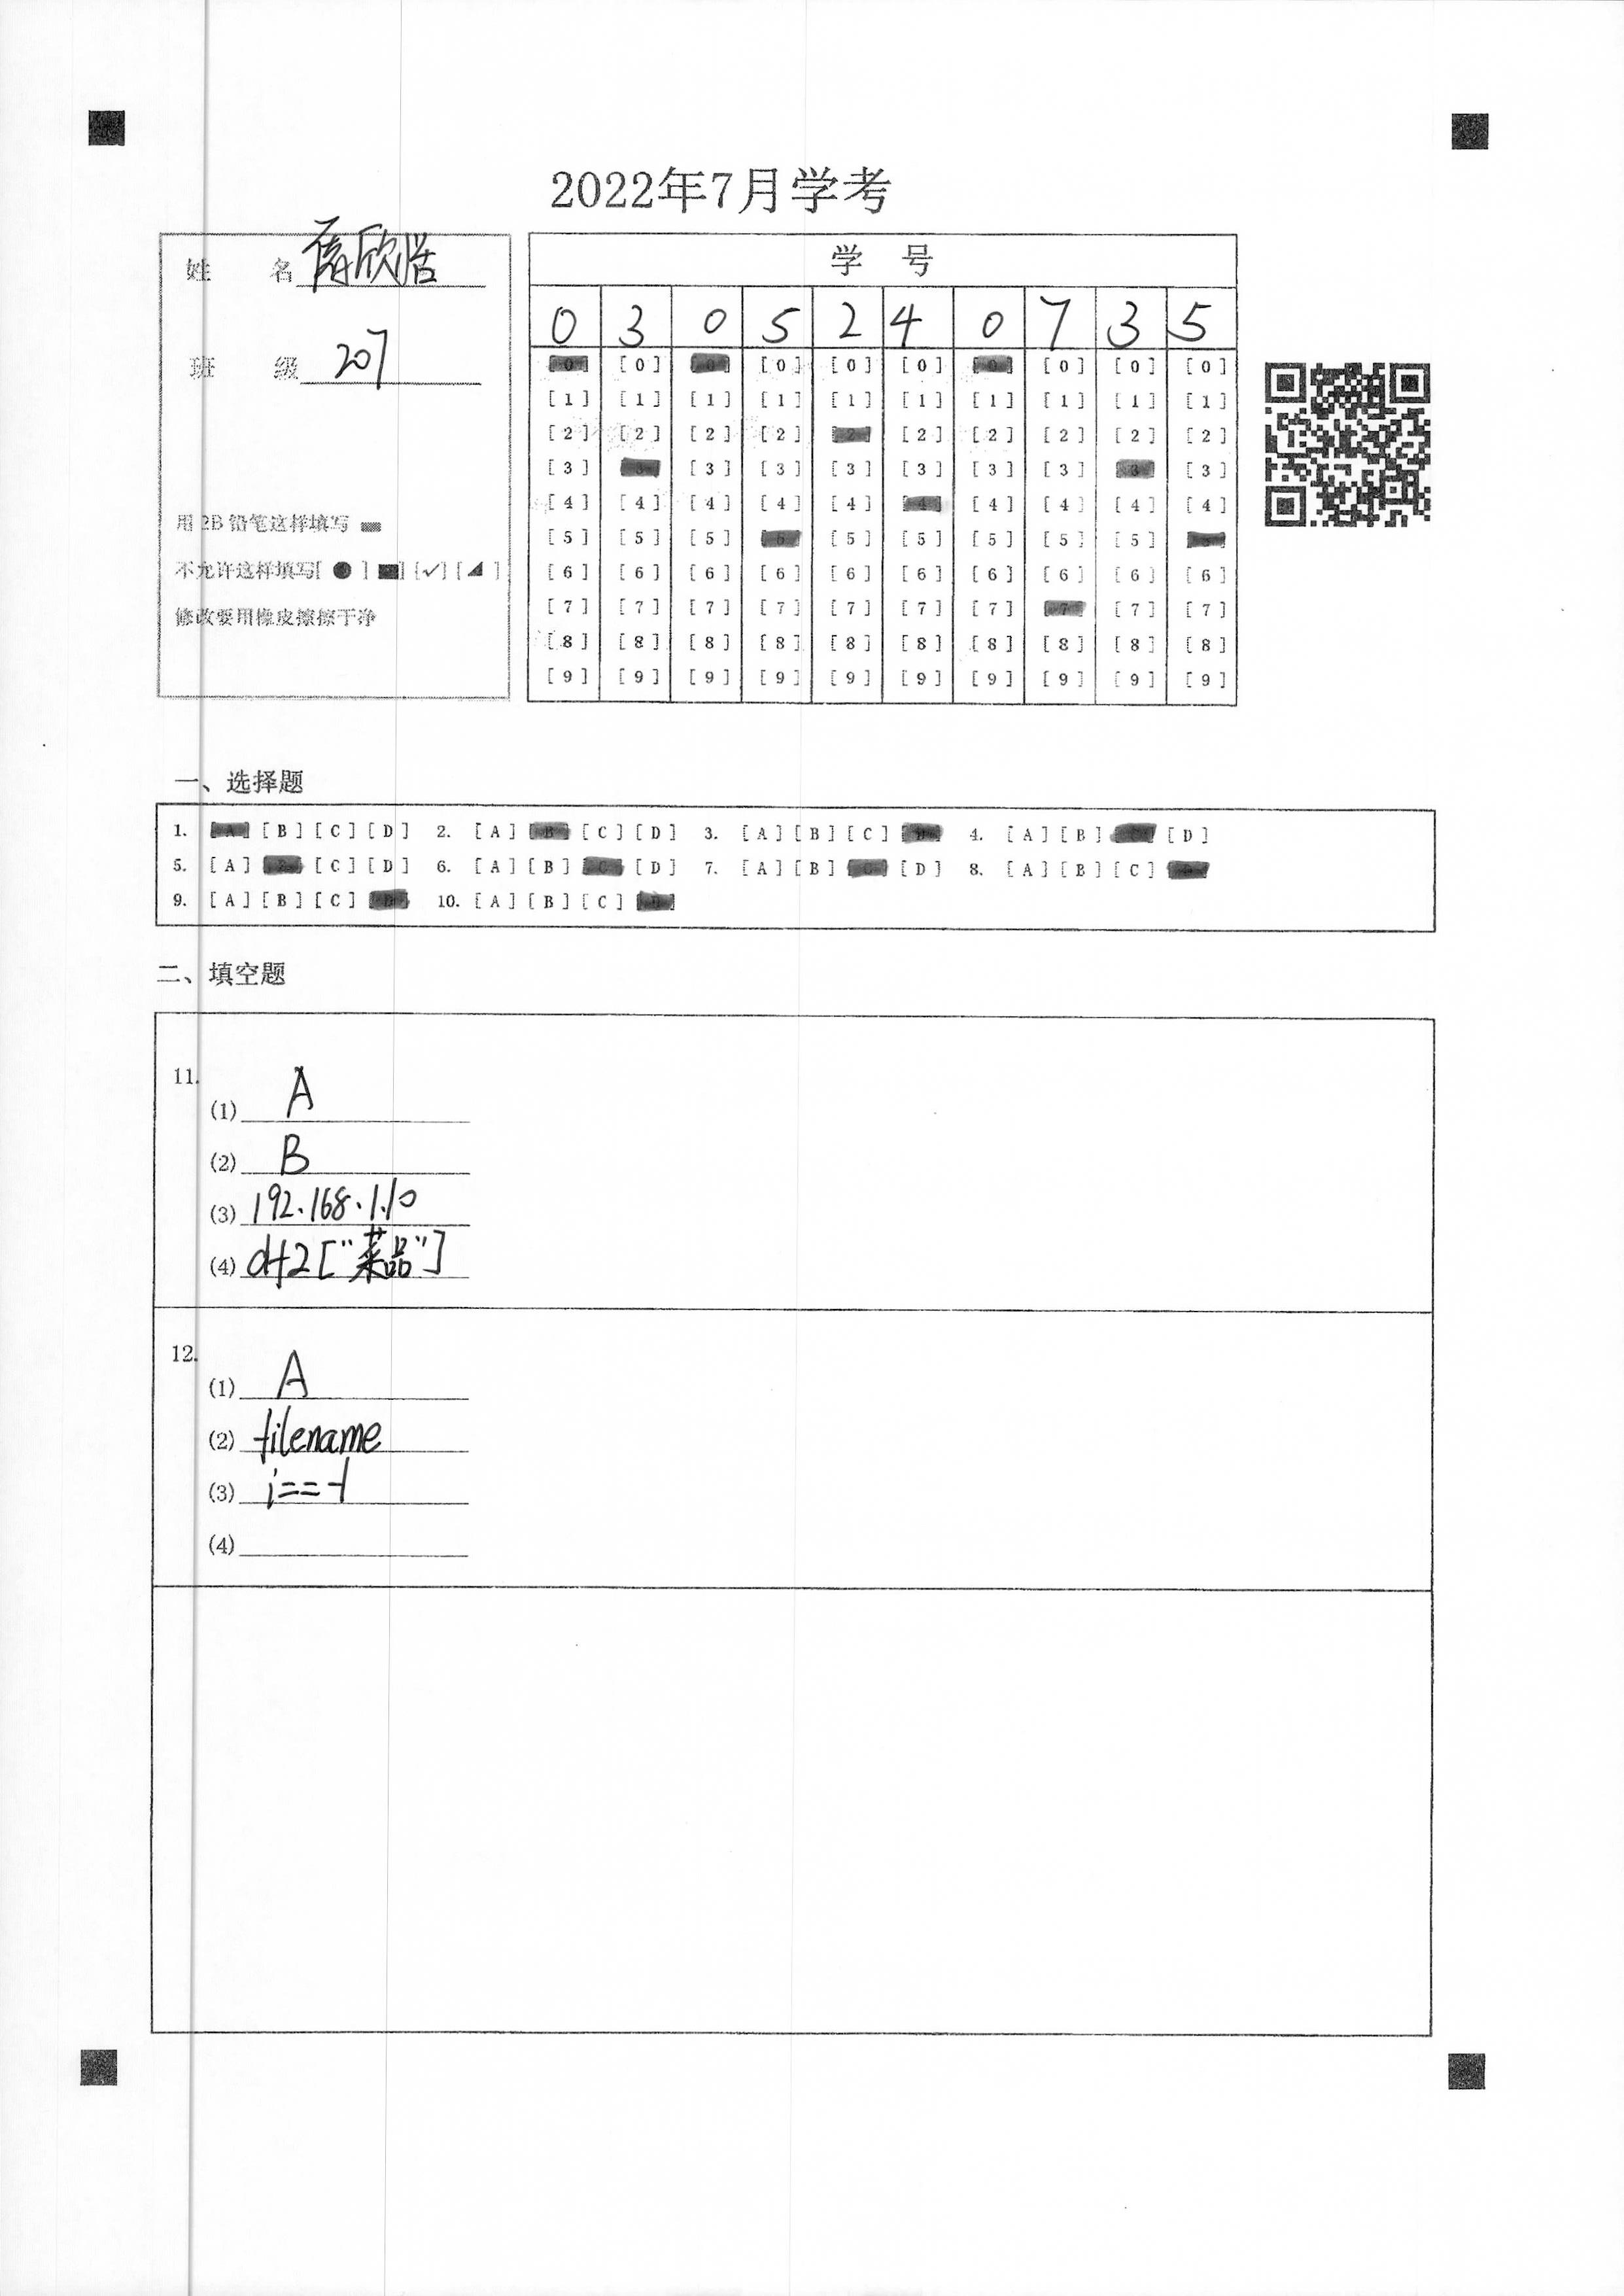 2022年7月学考
姓 名 欣浩
班 级 207
用 2B 铅笔这样填写
不允许这样填写[ ● ] [■] [✓] [◢ ]
修改要用橡皮擦擦干净
学 号
0 3 0 5 2 4 0 7 3 5
[0] [0] [0] [0] [0] [0] [0] [0] [0] [0]
[1] [1] [1] [1] [1] [1] [1] [1] [1] [1]
[2] [2] [2] [2] [2] [2] [2] [2] [2] [2]
[3] [3] [3] [3] [3] [3] [3] [3] [3] [3]
[4] [4] [4] [4] [4] [4] [4] [4] [4] [4]
[5] [5] [5] [5] [5] [5] [5] [5] [5] [5]
[6] [6] [6] [6] [6] [6] [6] [6] [6] [6]
[7] [7] [7] [7] [7] [7] [7] [7] [7] [7]
[8] [8] [8] [8] [8] [8] [8] [8] [8] [8]
[9] [9] [9] [9] [9] [9] [9] [9] [9] [9]
一、选择题
1. [A] [B] [C] [D] 2. [A] [B] [C] [D] 3. [A] [B] [C] [D] 4. [A] [B] [C] [D]
5. [A] [B] [C] [D] 6. [A] [B] [C] [D] 7. [A] [B] [C] [D] 8. [A] [B] [C] [D]
9. [A] [B] [C] [D] 10. [A] [B] [C] [D]
二、填空题
11.
(1) A
(2) B
(3) 192.168.1.10
(4) df2["菜品"]
12.
(1) A
(2) filename
(3) i==-1
(4)